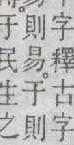 字釋古字
于則易于則
民生之